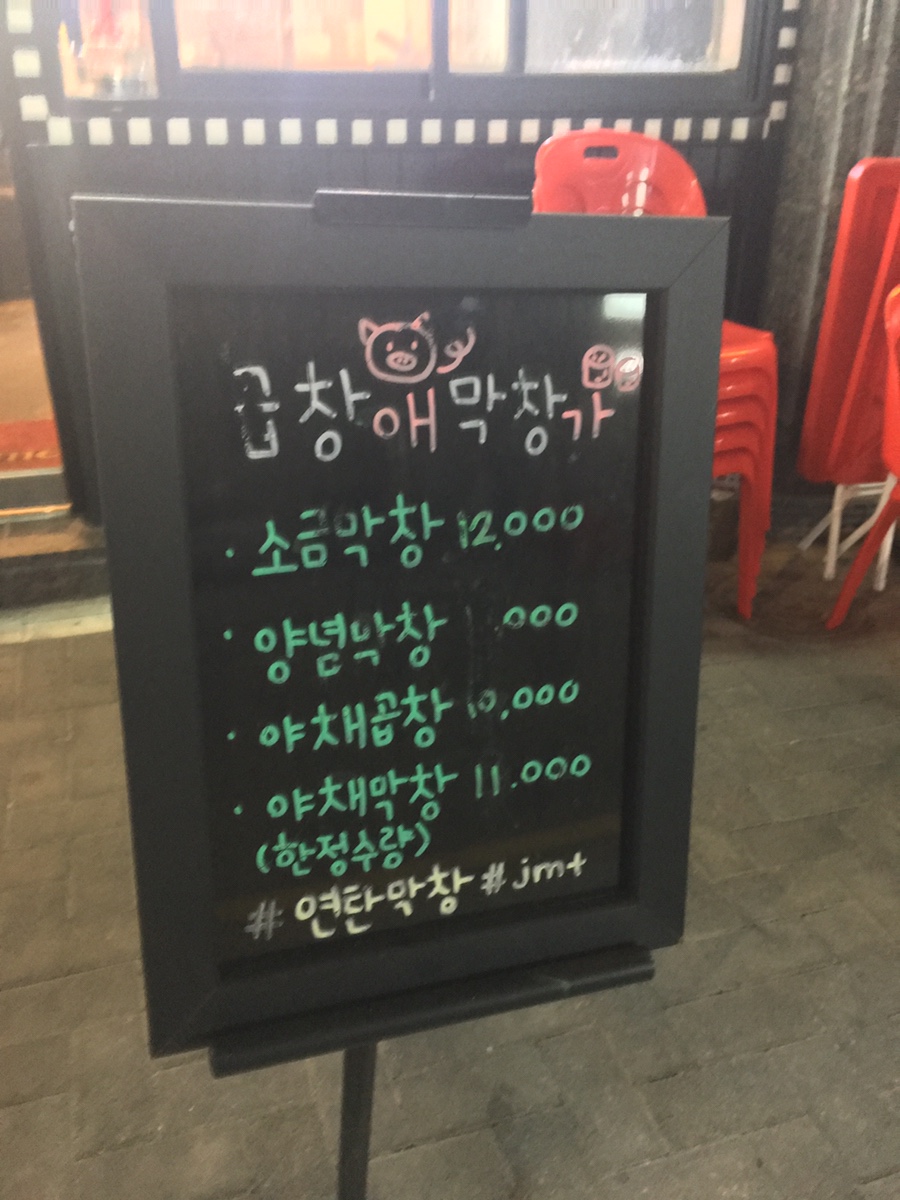 곱창애막창가
· 소금막창 12,000
· 양념막창
· 야채곱창 10,000
· 야채막창 11.000
(한정수량)
# 연탄막창 #jmt